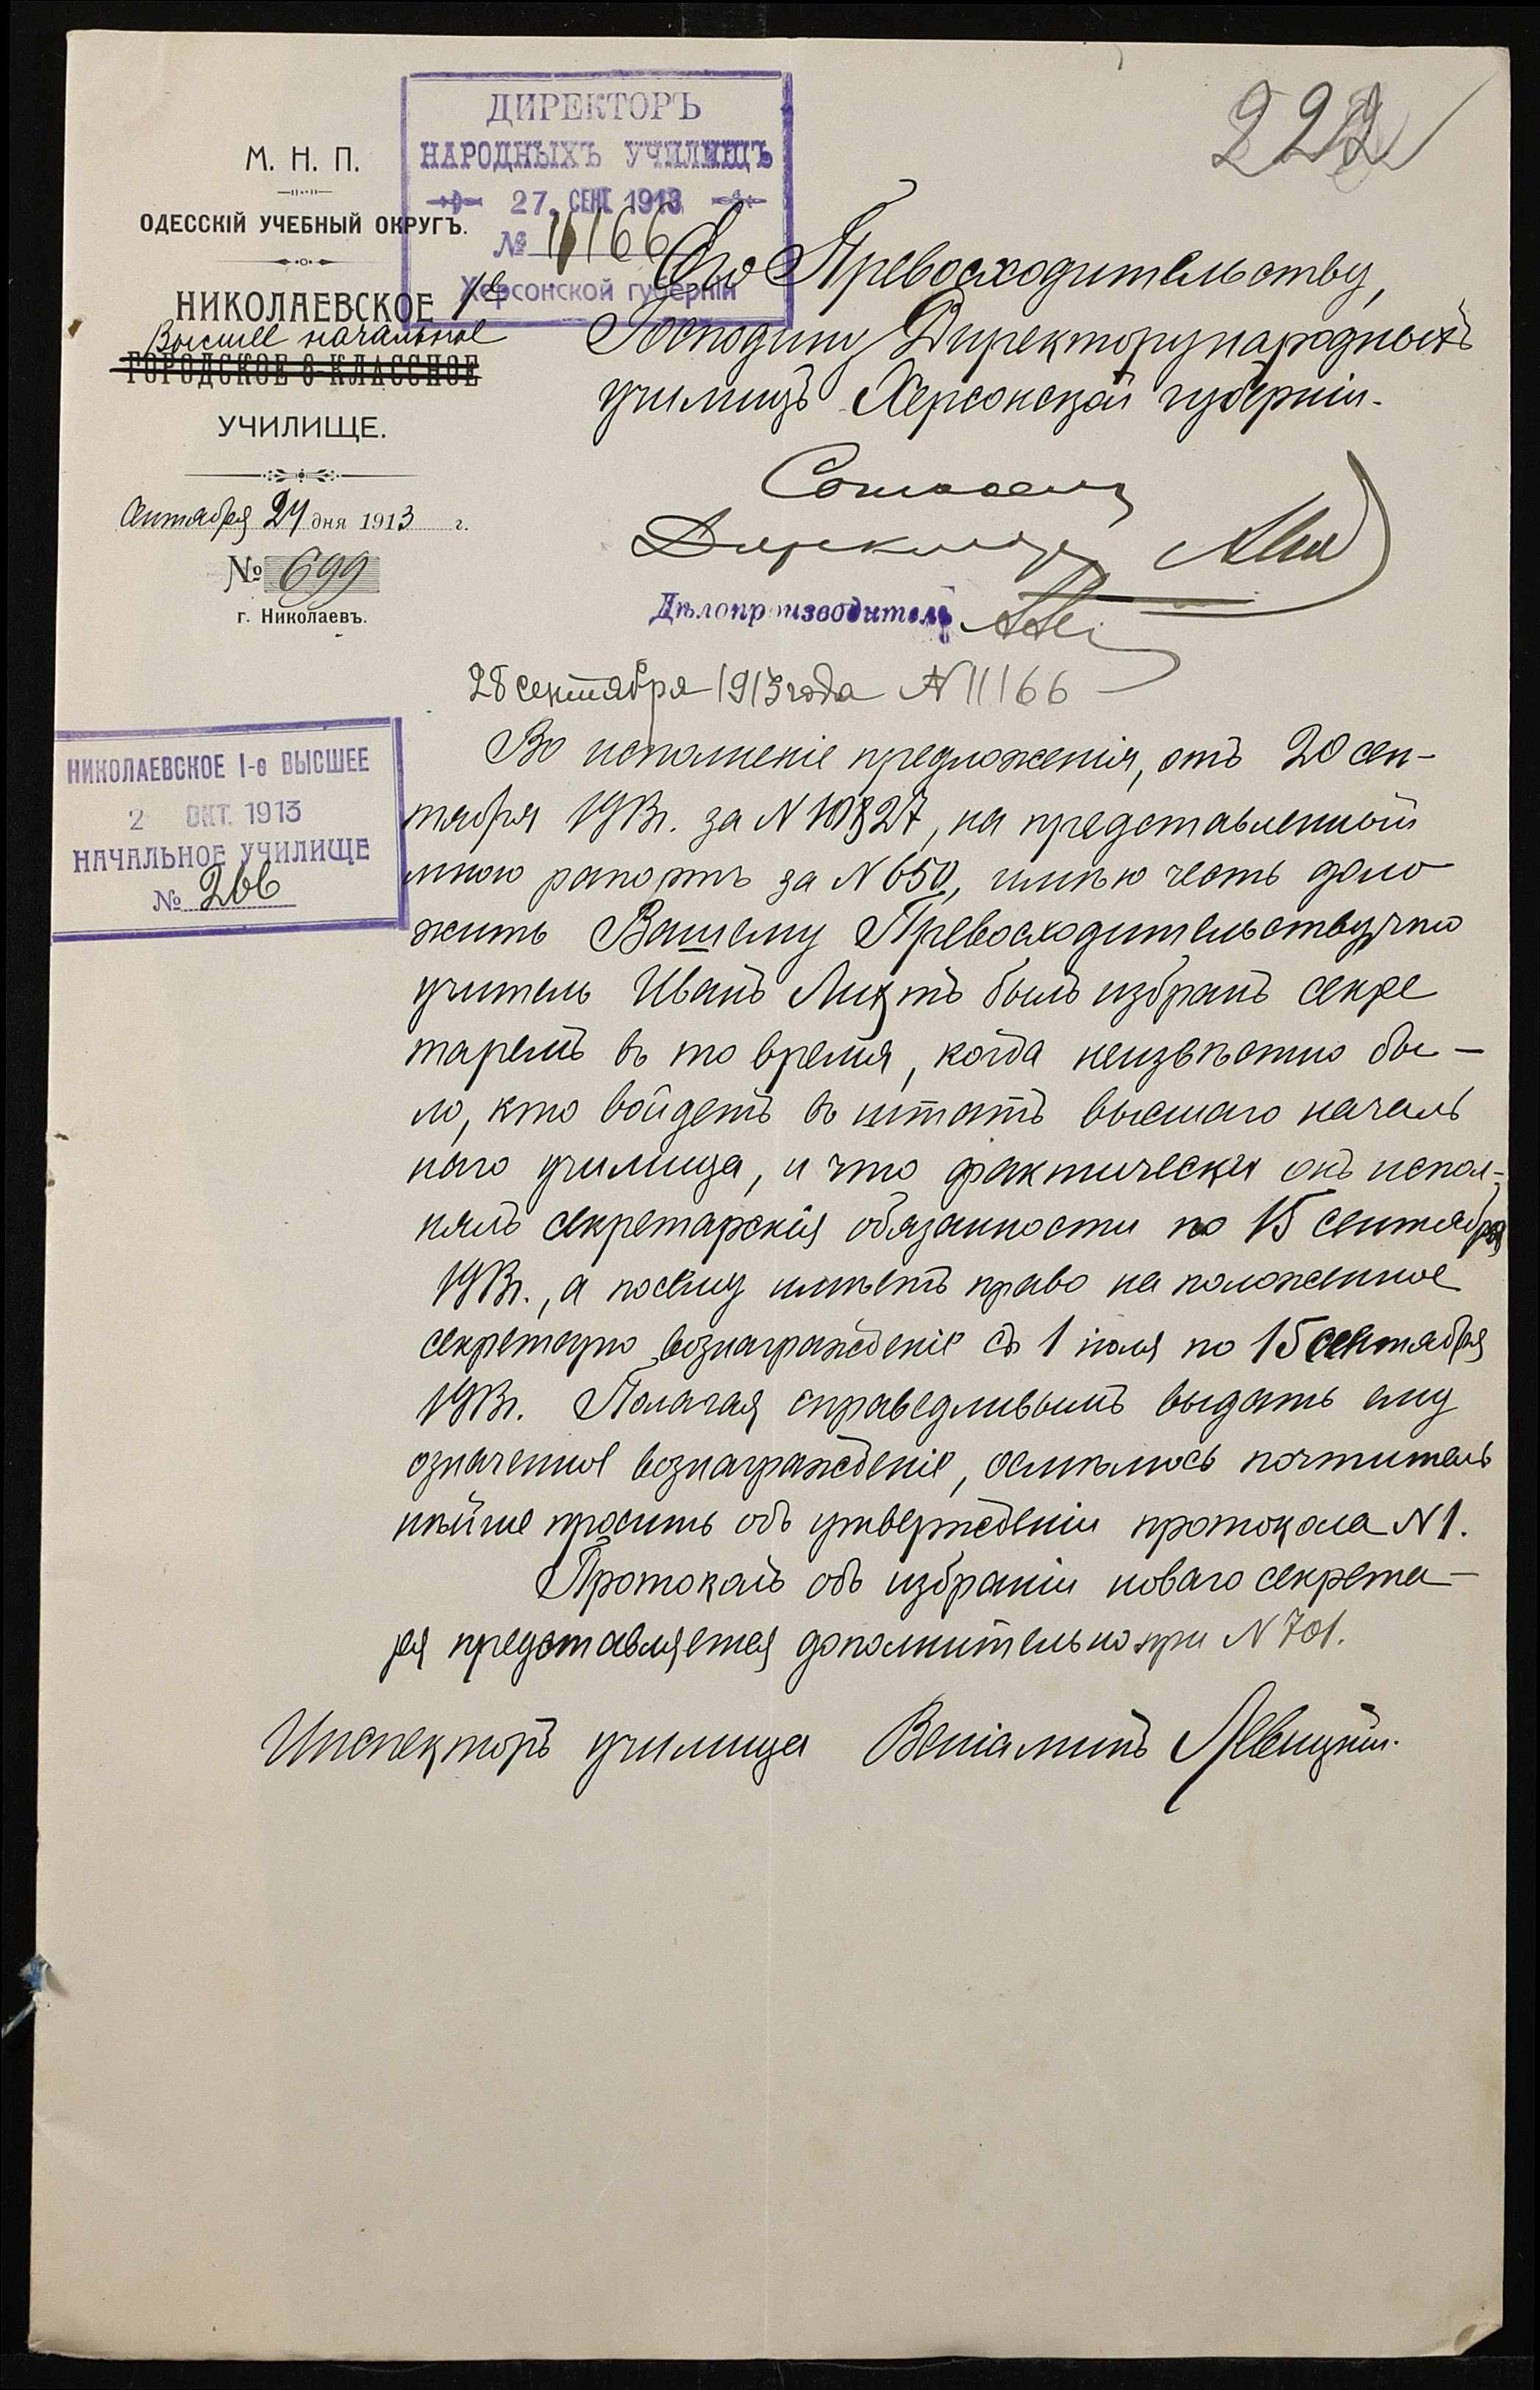 222
ДИРЕКТОРЪ
НАРОДНЫХЪ УЧИЛИЩЪ
27. СЕНТ 1913
№ 11166
Херсонской губерніи
М. Н. П.
ОДЕССКІЙ УЧЕБНЫЙ ОКРУГЪ.
НИКОЛАЕВСКОЕ 1е
Высшее начальное
ГОРОДСКОЕ 6-КЛАССНОЕ
УЧИЛИЩЕ.
Сентября 24 дня 1913 г.
№ 699
г. Николаевъ.
Его Превосходительству,
Господину Директору народныхъ
училищъ Херсонской губерніи.
Согласенъ
Директоръ
Дѣлопроизводитель
28 сентября 1913 года № 11166
НИКОЛАЕВСКОЕ 1-е ВЫСШЕЕ
2 ОКТ. 1913
НАЧАЛЬНОЕ УЧИЛИЩЕ
№ 266
Во исполненіе предложенія, отъ 20 сен-
тября 1913г. за № 10827, на представленный
мною рапортъ за № 650, имѣю честь доло
жить Вашему Превосходительству, что
учитель Иванъ Лихтъ былъ избранъ секре
таремъ въ то время, когда неизвѣстно бы-
ло, кто войдетъ въ штатъ высшаго началь
наго училища, и что фактически онъ испол-
нялъ секретарскія обязанности по 15 сентября
1913г., а посему имѣетъ право на положенное
секретарю вознагражденіе съ 1 іюля по 15 сентября
1913г. Полагая справедливымъ выдать ему
означенное вознагражденіе, осмѣлюсь почтитель
нѣйше просить объ утвержденіи протокола № 1.
Протоколъ объ избраніи новаго секрета-
ря представляется дополнительно при № 701.
Инспекторъ училища Веніаминъ Левицкій.